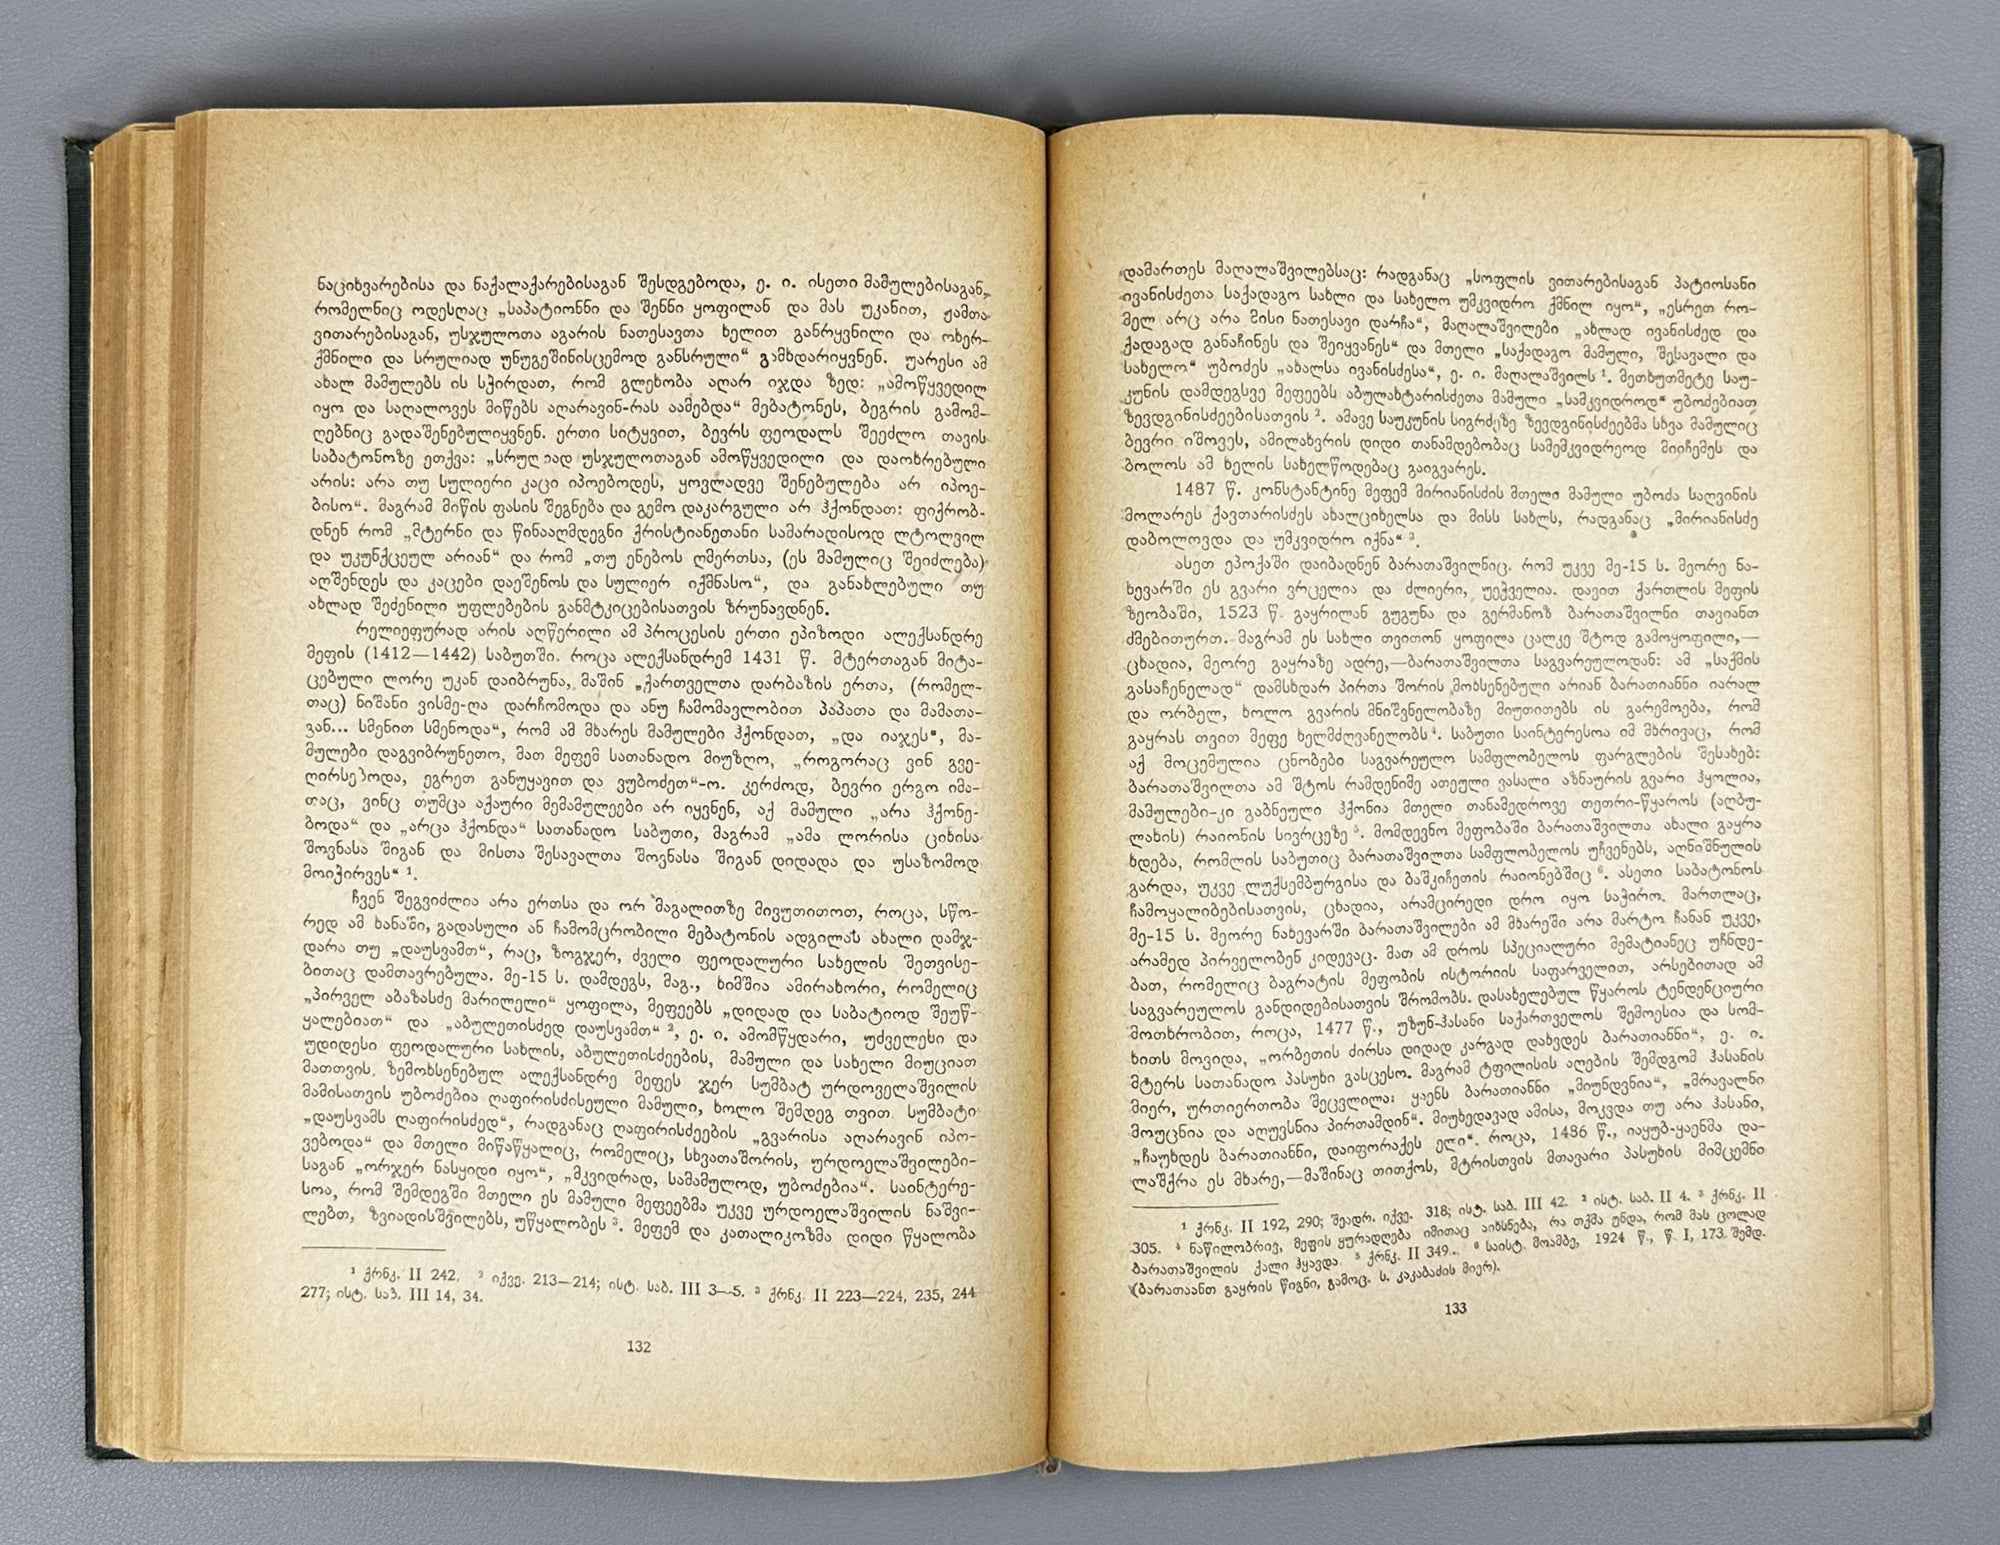 ნაციხვარებისა და ნაქალაქარებისაგან შესდგებოდა, ე. ი. ისეთი მამულებისაგან,
რომელნიც ოდესღაც „საპატიონნი და შენნი ყოფილან და მას უკანით, ჟამთა
ვითარებისაგან, უსჯულოთა აგარის ნათესავთა ხელით განრყვნილი და ოხერ-
ქმნილი და სრულიად უნუგეშინისცემოდ განსრული“ გამხდარიყვნენ. უარესი ამ
ახალ მამულებს ის სჭირდათ, რომ გლეხობა აღარ იჯდა ზედ: „ამოწყვედილ
იყო და საღალოვეს მიწებს აღარავინ-რას აამებდა“ მებატონეს, ბეგრის გამომ-
ღებნიც გადაშენებულიყვნენ. ერთი სიტყვით, ბევრს ფეოდალს შეეძლო თავის
საბატონოზე ეთქვა: „სრულიად უსჯულოთაგან ამოწყვედილი და დაოხრებული
არის: არა თუ სულიერი კაცი იპოებოდეს, ყოვლადვე შენებულება არ იპოე-
ბისო“. მაგრამ მიწის ფასის შეგნება და გემო დაკარგული არ ჰქონდათ: ფიქრობ-
დნენ რომ „მტერნი და წინააღმდეგნი ქრისტიანეთანი სამარადისოდ ლტოლვილ
და უკუნქცეულ არიან“ და რომ „თუ ენებოს ღმერთსა, (ეს მამულიც შეიძლება)
აღშენდეს და კაცები დაეშენოს და სულიერ იქმნასო“, და განახლებული თუ
ახლად შეძენილი უფლებების განმტკიცებისათვის ზრუნავდნენ.
რელიეფურად არის აღწერილი ამ პროცესის ერთი ეპიზოდი ალექსანდრე
მეფის (1412—1442) საბუთში. როცა ალექსანდრემ 1431 წ. მტერთაგან მიტა-
ცებული ლორე უკან დაიბრუნა, მაშინ „ქართველთა დარბაზის ერთა, (რომელ-
თაც) ნიშანი ვისმე-ღა დარჩომოდა და ანუ ჩამომავლობით პაპათა და მამათა-
გან... სმენით სმენოდა“, რომ ამ მხარეს მამულები ჰქონდათ, „და იაჯეს“, მა-
მულები დაგვიბრუნეთო, მათ მეფემ სათანადო მიუზღო, „როგორაც ვინ გვე-
ღირსებოდა, ეგრეთ განუყავით და ვუბოძეთ“-ო. კერძოდ, ბევრი ერგო იმა-
თაც, ვინც თუმცა აქაური მემამულეები არ იყვნენ, აქ მამული „არა ჰქონე-
ბოდა“ და „არცა ჰქონდა“ სათანადო საბუთი, მაგრამ „ამა ლორისა ციხისა
შოვნასა შიგან და მისთა შესავალთა შოვნასა შიგან დიდადა და უსაზომოდ
მოიჭირვეს“ ¹.
ჩვენ შეგვიძლია არა ერთსა და ორ მაგალითზე მივუთითოთ, როცა, სწო-
რედ ამ ხანაში, გადასული ან ჩამომცრობილი მებატონის ადგილას ახალი დამჯ-
დარა თუ „დაუსვამთ“, რაც, ზოგჯერ, ძველი ფეოდალური სახელის შეთვისე-
ბითაც დამთავრებულა. მე-15 ს. დამდეგს, მაგ., ხიმშია ამირახორი, რომელიც
„პირველ აბაზასძე მარილელი“ ყოფილა, მეფეებს „დიდად და საბატიოდ შეუწ-
ყალებიათ“ და „აბულეთისძედ დაუსვამთ“ ², ე. ი. ამომწყდარი, უძველესი და
უდიდესი ფეოდალური სახლის, აბულეთისძეების, მამული და სახელი მიუციათ
მათთვის. ზემოხსენებულ ალექსანდრე მეფეს ჯერ სუმბატ ურდოველაშვილის
მამისათვის უბოძებია ღაფირისძისეული მამული, ხოლო შემდეგ თვით სუმბატი
„დაუსვამს ღაფირისძედ“, რადგანაც ღაფირისძეების „გვარისა აღარავინ იპო-
ვებოდა“ და მთელი მიწაწყალიც, რომელიც, სხვათაშორის, ურდოელაშვილები-
საგან „ორჯერ ნასყიდი იყო“, „მკვიდრად, სამამულოდ, უბოძებია“. საინტერე-
სოა, რომ შემდეგში მთელი ეს მამული მეფეებმა უკვე ურდოელაშვილის ნაშვი-
ლებთ, ზვიადისშვილებს, უწყალობეს ³. მეფემ და კათალიკოზმა დიდი წყალობა
¹ ქრნკ. II 242. ² იქვე. 213—214; ისტ. საბ. III 3—5. ³ ქრნკ. II 223—224, 235, 244
277; ისტ. საბ. III 14, 34.
132
დამართეს მაღალაშვილებსაც: რადგანაც „სოფლის ვითარებისაგან პატიოსანი
ივანისძეთა საქადაგო სახლი და სახელო უმკვიდრო ქმნილ იყო“, „ესრეთ რო-
მელ არც არა მისი ნათესავი დარჩა“, მაღალაშვილები „ახლად ივანისძედ და
ქადაგად განაჩინეს და შეიყვანეს“ და მთელი „საქადაგო მამული, შესავალი და
სახელო“ უბოძეს „ახალსა ივანისძესა“, ე. ი. მაღალაშვილს ¹. მეთხუთმეტე საუ-
კუნის დამდეგსვე მეფეებს აბულახტარისძეთა მამული „სამკვიდროდ“ უბოძებიათ
ზევდგინისძეებისათვის ². ამავე საუკუნის სიგრძეზე ზევდგინისძეებმა სხვა მამულიც
ბევრი იშოვეს, ამილახვრის დიდი თანამდებობაც სამემკვიდრეოდ მიიჩემეს და
ბოლოს ამ ხელის სახელწოდებაც გაიგვარეს.
1487 წ. კონსტანტინე მეფემ მირიანისძის მთელი მამული უბოძა საღვინის
მოლარეს ქავთარისძეს ახალციხელსა და მისს სახლს, რადგანაც „მირიანისძე
დაბოლოვდა და უმკვიდრო იქნა“ ³.
ასეთ ეპოქაში დაიბადნენ ბარათაშვილნიც. რომ უკვე მე-15 ს. მეორე ნა-
ხევარში ეს გვარი ვრცელია და ძლიერი, უეჭველია. დავით ქართლის მეფის
ზეობაში, 1523 წ. გაყრილან გუგუნა და გერმანოზ ბარათაშვილნი თავიანთ
ძმებითურთ. მაგრამ ეს სახლი თვითონ ყოფილა ცალკე შტოდ გამოყოფილი,—
ცხადია, მეორე გაყრაზე ადრე,—ბარათაშვილთა საგვარეულოდან: ამ „საქმის
გასაჩენელად“ დამსხდარ პირთა შორის მოხსენებული არიან ბარათიანნი იარალ
და ორბელ, ხოლო გვარის მნიშვნელობაზე მიუთითებს ის გარემოება, რომ
გაყრას თვით მეფე ხელმძღვანელობს ⁴. საბუთი საინტერესოა იმ მხრივაც, რომ
აქ მოცემულია ცნობები საგვარეულო სამფლობელოს ფარგლების შესახებ:
ბარათაშვილთა ამ შტოს რამდენიმე ათეული ვასალი აზნაურის გვარი ჰყოლია,
მამულები-კი გაბნეული ჰქონია მთელი თანამედროვე თეთრი-წყაროს (აღბუ-
ლახის) რაიონის სივრცეზე ⁵. მომდევნო მეფობაში ბარათაშვილთა ახალი გაყრა
ხდება, რომლის საბუთიც ბარათაშვილთა სამფლობელოს უჩვენებს, აღნიშნულის
გარდა, უკვე ლუქსემბურგისა და ბაშკიჩეთის რაიონებშიც ⁶. ასეთი საბატონოს
ჩამოყალიბებისათვის, ცხადია, არამცირედი დრო იყო საჭირო. მართლაც,
მე-15 ს. მეორე ნახევარში ბარათაშვილები ამ მხარეში არა მარტო ჩანან უკვე,
არამედ პირველობენ კიდევაც. მათ ამ დროს სპეციალური მემატიანეც უჩნდე-
ბათ, რომელიც ბაგრატის მეფობის ისტორიის საფარველით, არსებითად ამ
საგვარეულოს განდიდებისათვის შრომობს. დასახელებულ წყაროს ტენდენციური
მოთხრობით, როცა, 1477 წ., უზუნ-ჰასანი საქართველოს შემოესია და სომ-
ხითს მოვიდა, „ორბეთის ძირსა დიდად კარგად დახვდეს ბარათიანნი“, ე. ი.
მტერს სათანადო პასუხი გასცესო. მაგრამ ტფილისის აღების შემდგომ ჰასანის
მიერ, ურთიერთობა შეცვლილა: ყაენს ბარათიანნი „მიუნდვნია“, „მრავალნი
მოუცნია და აღუვსნია პირთამდინ“. მიუხედავად ამისა, მოკვდა თუ არა ჰასანი,
„ჩაუხდეს ბარათიანნი, დაიფორაქეს ელი“. როცა, 1486 წ., იაყუბ-ყაენმა და-
ლაშქრა ეს მხარე,—მაშინაც თითქოს, მტრისთვის მთავარი პასუხის მიმცემნი
¹ ქრნკ. II 192, 290; შეადრ. იქვე. 318; ისტ. საბ. III 42. ² ისტ. საბ. II 4. ³ ქრნკ. II
305. ⁴ ნაწილობრივ, მეფის ყურადღება იმითაც აიხსნება, რა თქმა უნდა, რომ მას ცოლად
ბარათაშვილის ქალი ჰყავდა. ⁵ ქრნკ. II 349. ⁶ საისტ. მოამბე, 1924 წ., წ. I, 173 შემდ.
(ბარათაანთ გაყრის წიგნი, გამოც. ს. კაკაბაძის მიერ).
133